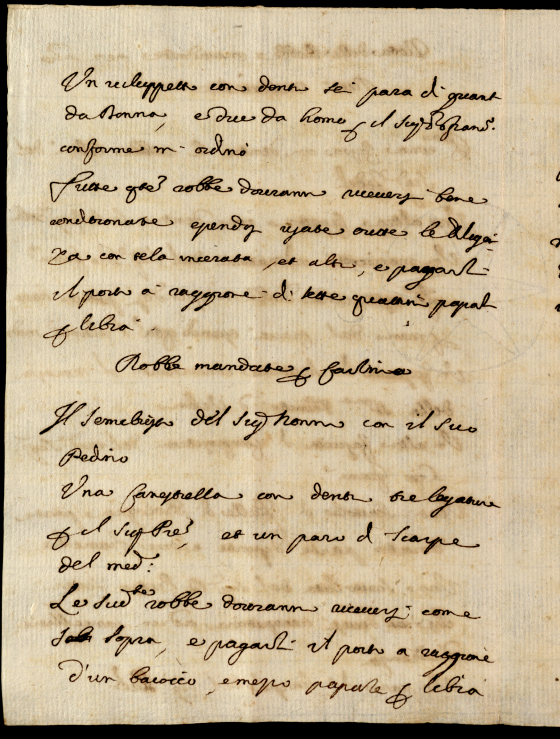 Un viluppetto con dentro sei para di guanti
da Donna, e due da homo p il Sigr Franc.
conforme m' ordinò
Tutte qte robbe dovranno riceversi bene
condizionate essendosi usate tutte le diligen
za con tela incerata, et altro, e pagarsi
il porto à raggione di sette quattrini papali
p libra.
Robbe mandate p
Il semebusto del Sigr Nonno con il suo
Pedino
Una Canestrella con dentro tre legature
p il Sigr, et un paro di Scarpe
del med:
Le sudte robbe dovranno riceversi come
sopra, e pagarsi il porto a raggione
d'un baiocco, e mezzo papale p libra